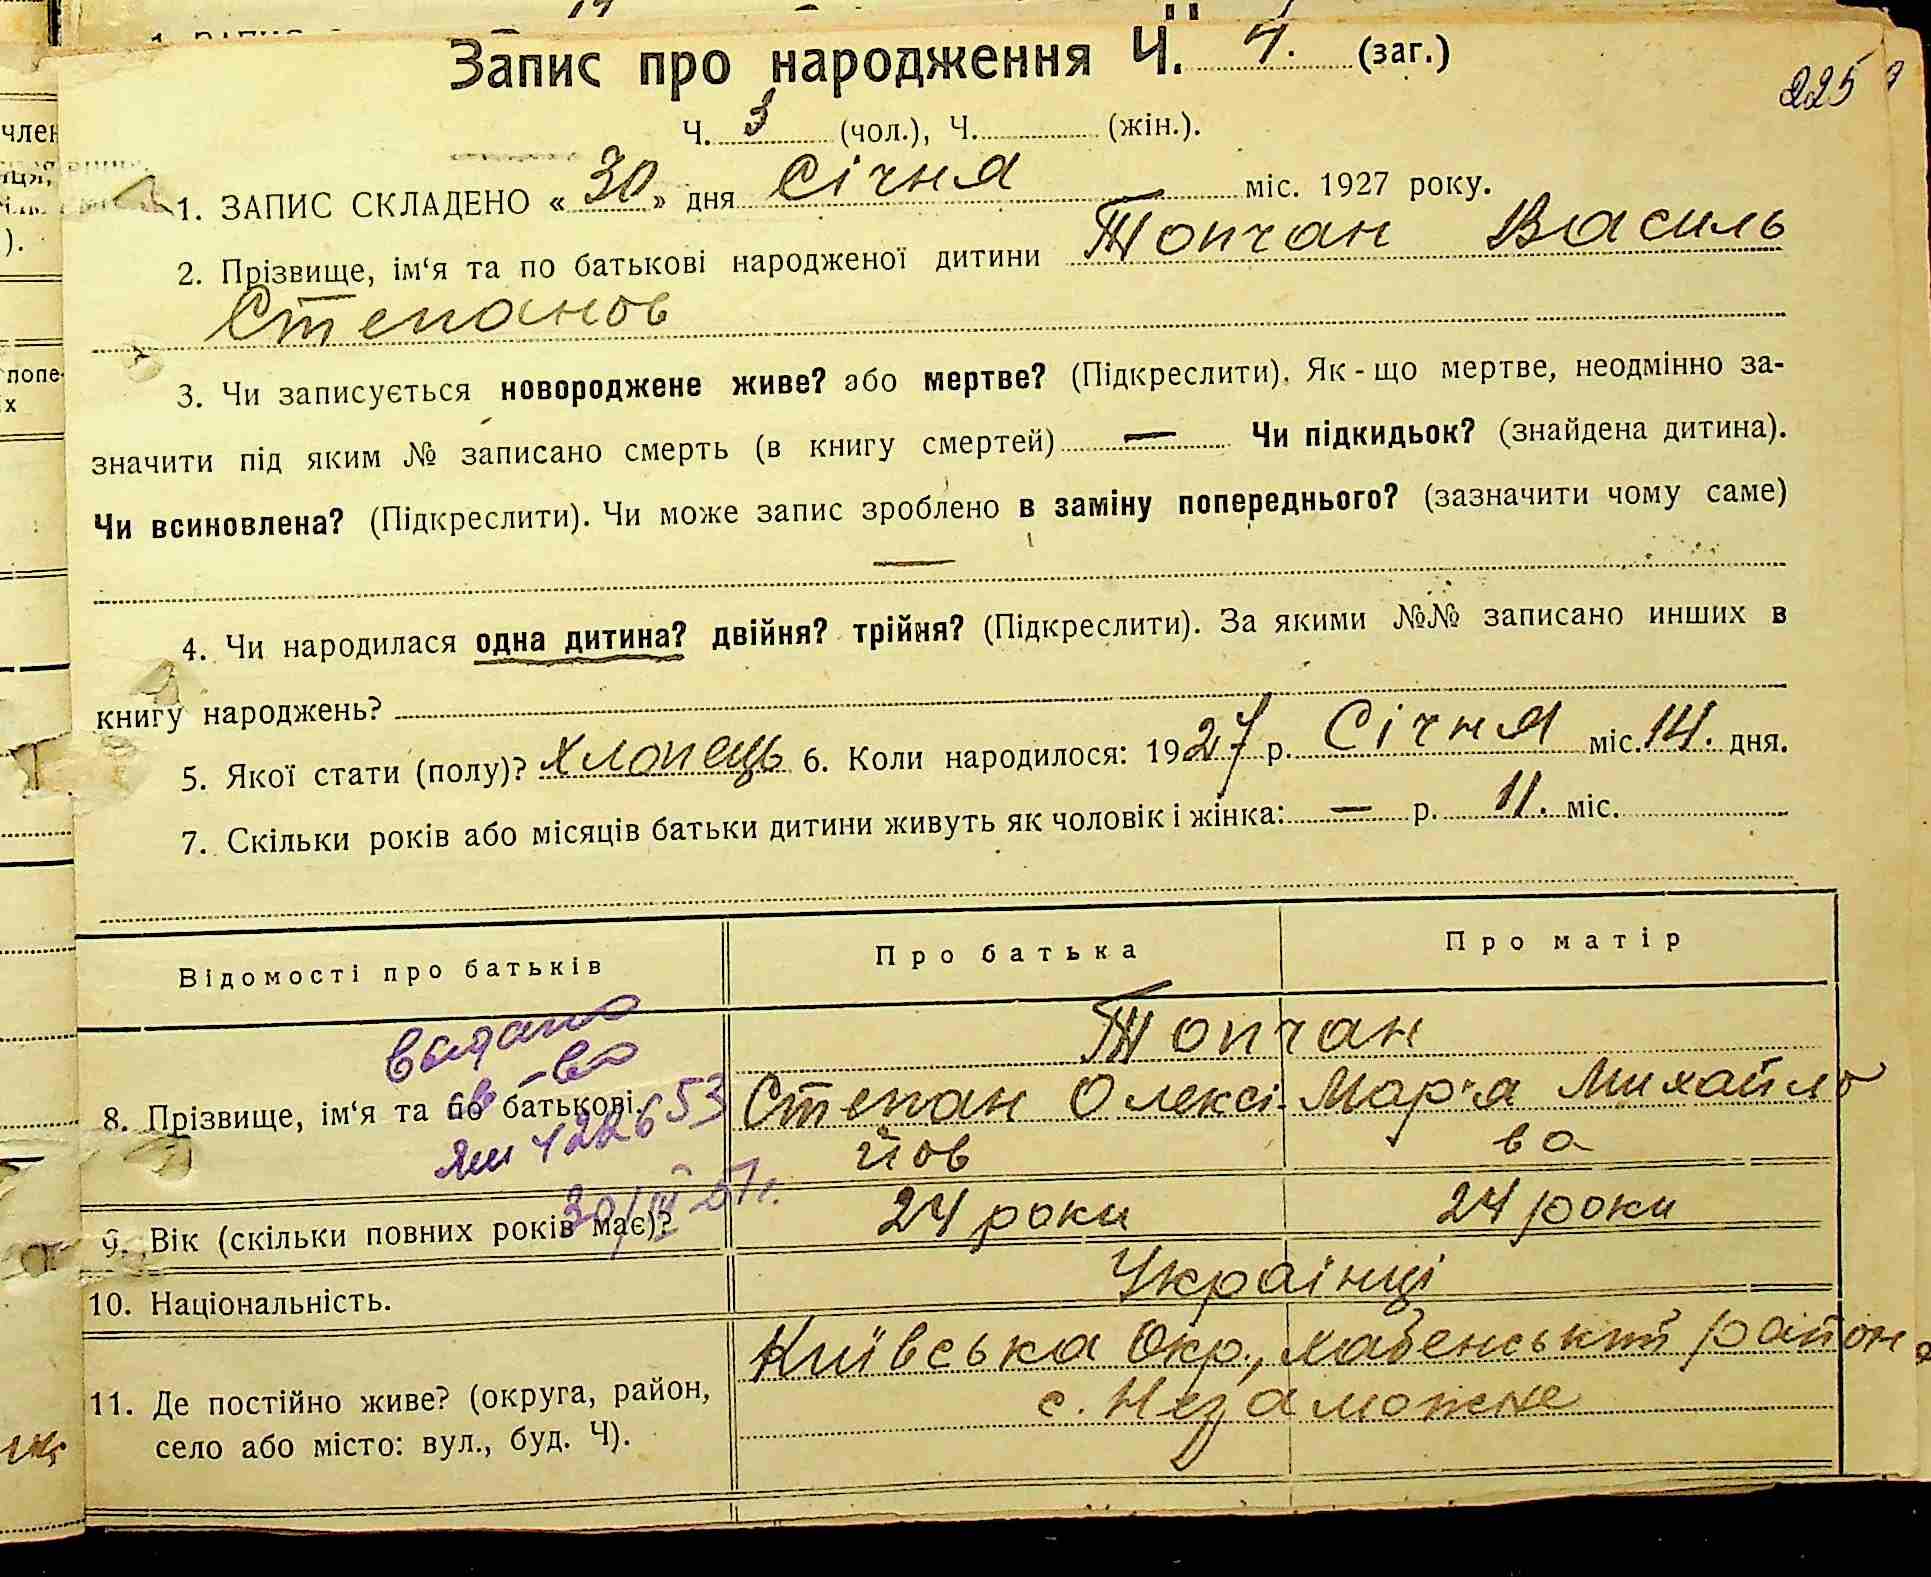 Запис про народження Ч. 7. (заг.)
225
Ч. 3 (чол.), Ч. (жін.).
1. ЗАПИС СКЛАДЕНО « 30 » дня Січня міс. 1927 року.
2. Прізвище, ім‘я та по батькові народженої дитини Топчан Василь
Степанов
3. Чи записується новороджене живе? або мертве? (Підкреслити). Як-що мертве, неодмінно за-
значити під яким № записано смерть (в книгу смертей) — Чи підкидьок? (знайдена дитина).
Чи всиновлена? (Підкреслити). Чи може запис зроблено в заміну попереднього? (зазначити чому саме)
—
4. Чи народилася одна дитина? двійня? трійня? (Підкреслити). За якими №№ записано инших в
книгу народжень?
5. Якої стати (полу)? хлопець 6. Коли народилося: 1927 р. Січня міс. 14. дня.
7. Скільки років або місяців батьки дитини живуть як чоловік і жінка: — р. 11. міс.
Відомості про батьків Про батька Про матір
видано
св-во
30/IV 57 г.
8. Прізвище, ім‘я та по батькові. Топчан
Степан Олексі- Мар'я Михайло
йов ва
9. Вік (скільки повних років має)? 24 роки 24 роки
10. Національність. Українці
11. Де постійно живе? (округа, район, Київська Окр., Хабенський район
село або місто: вул., буд. Ч). с. Незаможне
член
попе-
х